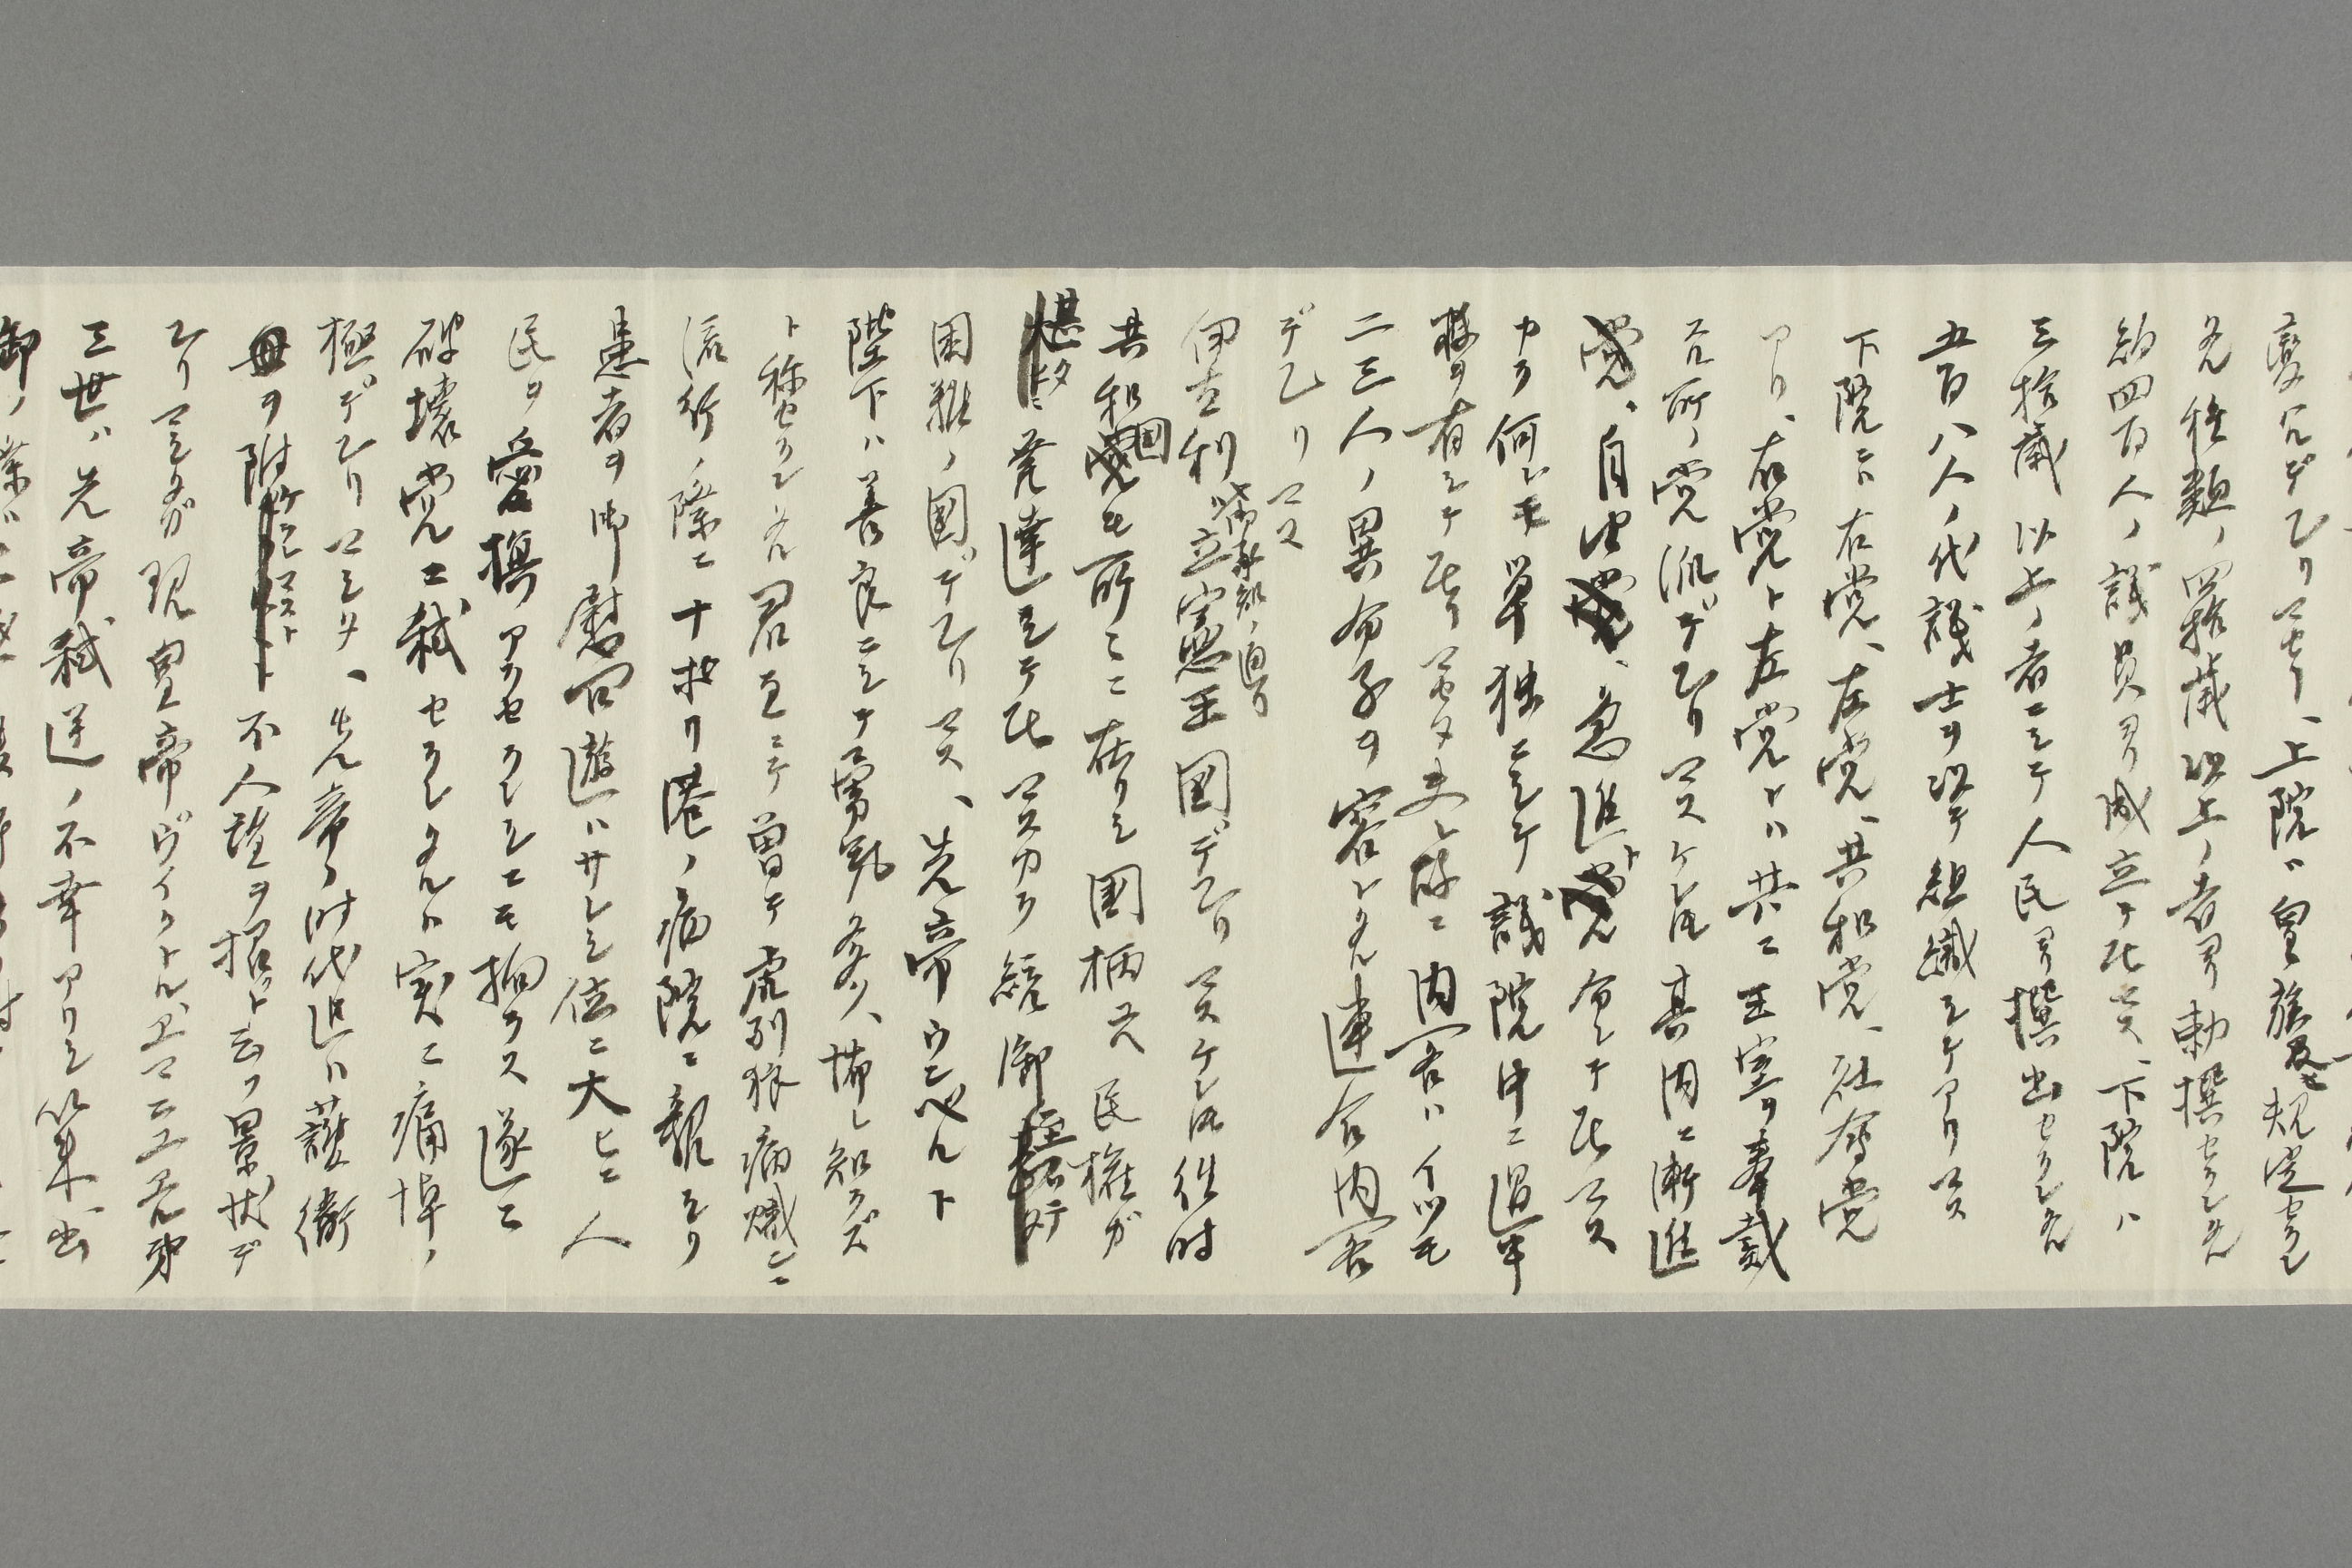 変冗デアリマセウ、上院ハ皇族及ビ規定セラレ
タル種類ノ四拾歳以上ノ者ヨリ勅撰セラレタル
約四百人ノ議員ヨリ成立チ居マス、下院ハ
三拾歳以上ノ者ニシテ人民ヨリ撰出セラレタル
五百八人ノ代議士ヲ以テ組織シテアリマス
下院ニハ右党、左党、共和党、社会党
アリ、右党ト左党トハ共ニ王室ヲ奉戴
スル所ノ党派デアリマスケレ共其内ニ漸進
党、自由、急進ト合シテ居マス
カラ何レモ単独ニシテ議院中ニ過半
数ヲ有シテ居リマセヌ夫レ故ニ内閣ハイツモ
二三人ノ異分子ヲ容レタル連合内閣
デアリマス
伊太利ハ御承知ノ通リ立憲王国デアリマスケレ共往時
共和国モ所々ニ在リシ国柄故民権ガ
甚タ発達シテ居マスカラ統御極テ
困難ノ国デアリマス、先帝ウンベルト
陛下ハ善良ニシテ勇気ニ富ミ、怖レ知ラズ
ト称セラレタル君主ニテ曽テ虎列拉病熾ニ
流行ノ際ニナポリ港ノ病院ニ親シク
患者ヲ御慰問遊ハサレシ位ニ大ヒニ人
民ヲ愛撫アラセラレシニモ拘ラス遂ニ
破壊党ニ弑セラレタルハ実ニ痛悼ノ
極デアリマシタ、先帝ノ時代迄ハ護衛
ヲ附ケマスト不人望ヲ招クト云フ景状デ
アリマシタガ現皇帝ヴィクトル、エマニユエル第
三世ハ先帝弑逆ノ不幸アリシ以来出
御ノ